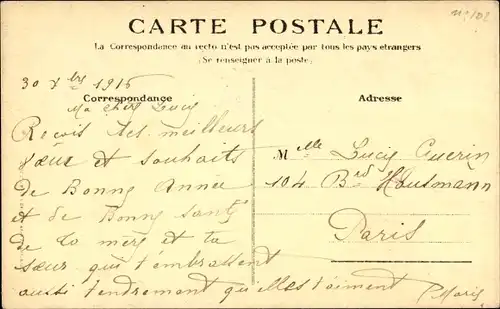 CARTE POSTALE
La Correspondance au recto n'est pas acceptée par tous les pays etrangers
(Se renseigner à la poste)
30 Xbre 1915
Correspondance
Ma chère Lucy
Recois tes meilleurs
vœux et souhaits
de Bonne Année
et de Bonne santé
de ta mère et ta
sœur qui t'embrassent
aussi tendrement qu'elles t'aiment
Adresse
Mlle Lucy Guerin
104 Brd Hausmann
Paris